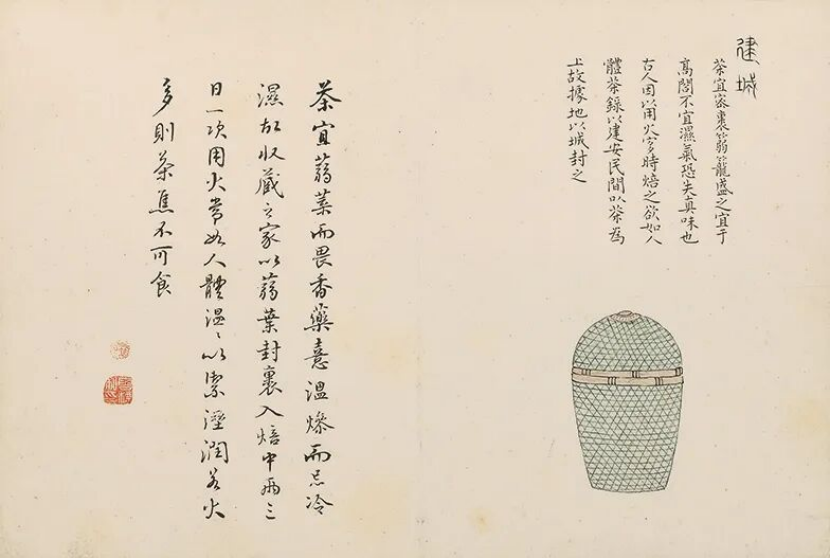 建城
茶宜密裹篛籠盛之宜于
高閣不宜濕氣恐失真味也
古人因以用火時焙之欲如人
體茶錄以建安民間以茶為
上故據地以城封之
茶宜蒻葉而畏香藥憙溫燥而忌冷
濕故收藏之家以蒻葉封裹入焙中兩三
日一次用火常如人體溫〻以禦溼潤若火
多則茶焦不可食